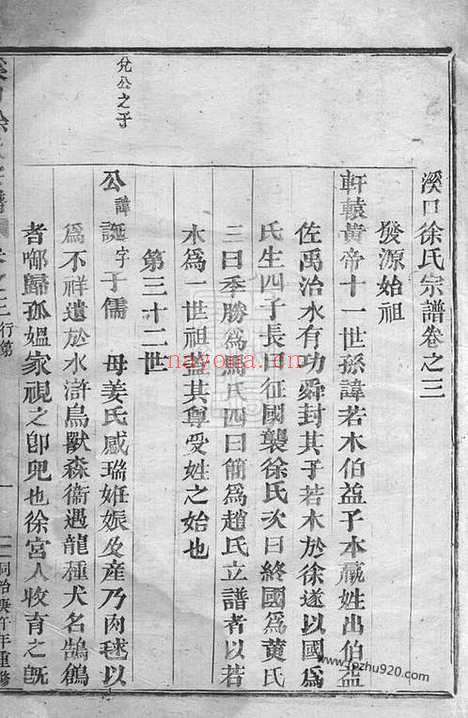 溪口徐氏宗譜卷之三
發源始祖
軒轅黃帝十一世孫諱若木伯益子本嬴姓出伯益
佐禹治水有功舜封其子若木於徐遂以國爲
氏生四子長曰征國襲徐氏次曰終國爲黃氏
三曰季勝爲馬氏四曰簡爲趙氏立譜者以若
木爲一世祖蓋其尊受姓之始也
第三十二世
兌公之子
公諱誕字子儒 母姜氏感瑞姙娠及產乃肉毬以
爲不祥遺於水滸鳥獸森衞遇龍種犬名鵠鶬
者啣歸孤媼家視之卽兒也徐宮人收育之旣
卷之三 行第
一
同治庚午年重修
nayona.cn
www.jpzhu920.com